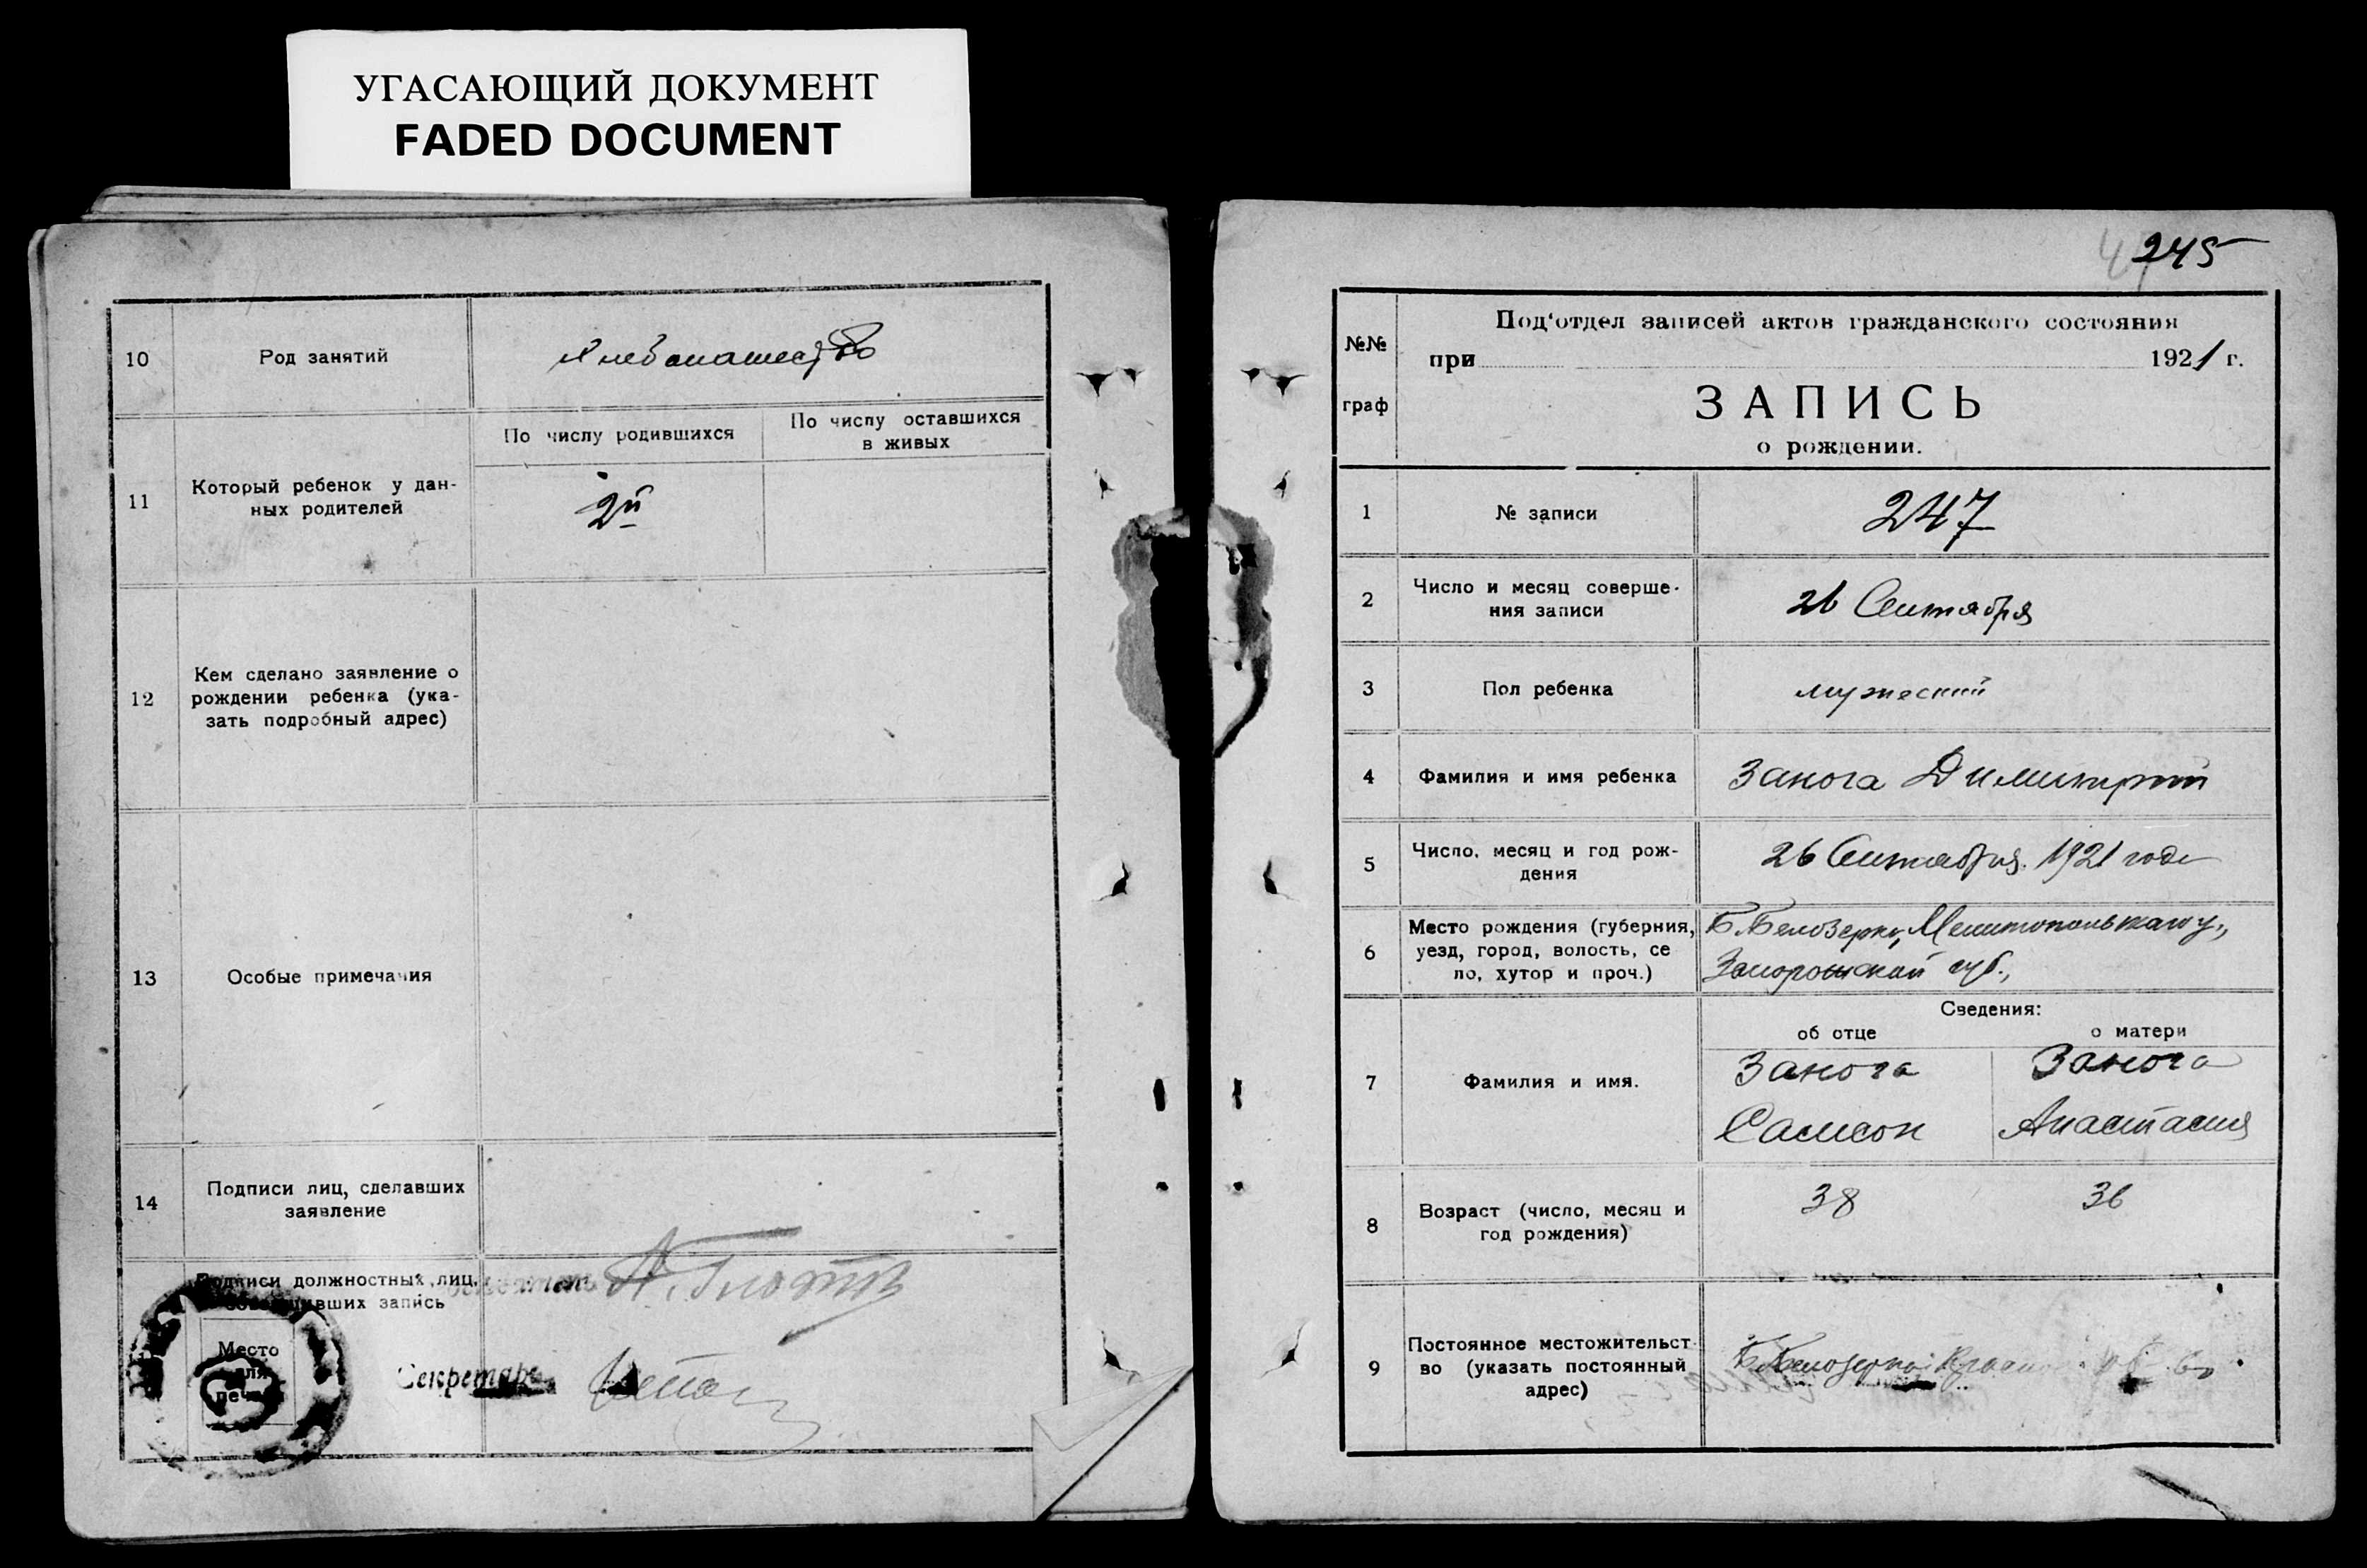 УГАСАЮЩИЙ ДОКУМЕНТ
FADED DOCUMENT
10
Род занятий
Хлебопашество
11
Который ребенок у дан-
ных родителей
По числу родившихся
По числу оставшихся
в живых
2й
12
Кем сделано заявление о
рождении ребенка (ука-
зать подробный адрес)
13
Особые примечания
14
Подписи лиц, сделавших
заявление
Подписи должностных лиц,
совершивших запись
Место
для
печати
Секретарь
245
№№
граф
Под'отдел записей актов гражданского состояния
при 1921 г.
ЗАПИСЬ
о рождении.
1
№ записи
247
2
Число и месяц соверше-
ния записи
26 Сентября
3
Пол ребенка
мужеский
4
Фамилия и имя ребенка
Занога Димитрий
5
Число, месяц и год рож-
дения
26 Сентября 1921 года
6
Место рождения (губерния,
уезд, город, волость, се
ло, хутор и проч.)
Б. Белозерка, Мелитопольского у.,
Запорожской губ.,
Сведения:
об отце
о матери
7
Фамилия и имя.
Занога
Самсон
Занога
Анастасия
8
Возраст (число, месяц и
год рождения)
38
36
9
Постоянное местожительст-
во (указать постоянный
адрес)
Б. Белозерка